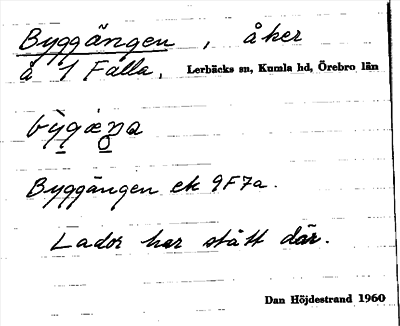 Byggängen, åker
å 1 Falla, Lerbäcks sn, Kumla hd, Örebro län
Byggängen ek 9F7a.
Lador har stått där.
Dan Höjdestrand 1960